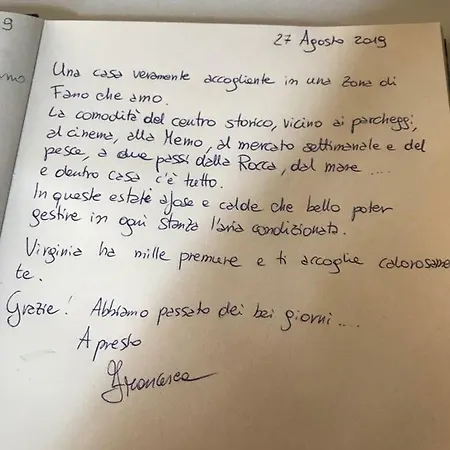 9
27 Agosto 2019
Una casa veramente accogliente in una zona di
Fano che amo.
La comodità del centro storico, vicino ai parcheggi,
al cinema, alla Memo, al mercato settimanale e del
pesce, a due passi dalla Rocca, dal mare ....
e dentro casa c'è tutto.
In queste estati afose e calde che bello poter
gestire in ogni stanza l'aria condizionata.
Virginia ha mille premure e ti accoglie calorosame
te.
Grazie! Abbiamo passato dei bei giorni....
A presto
Francesca